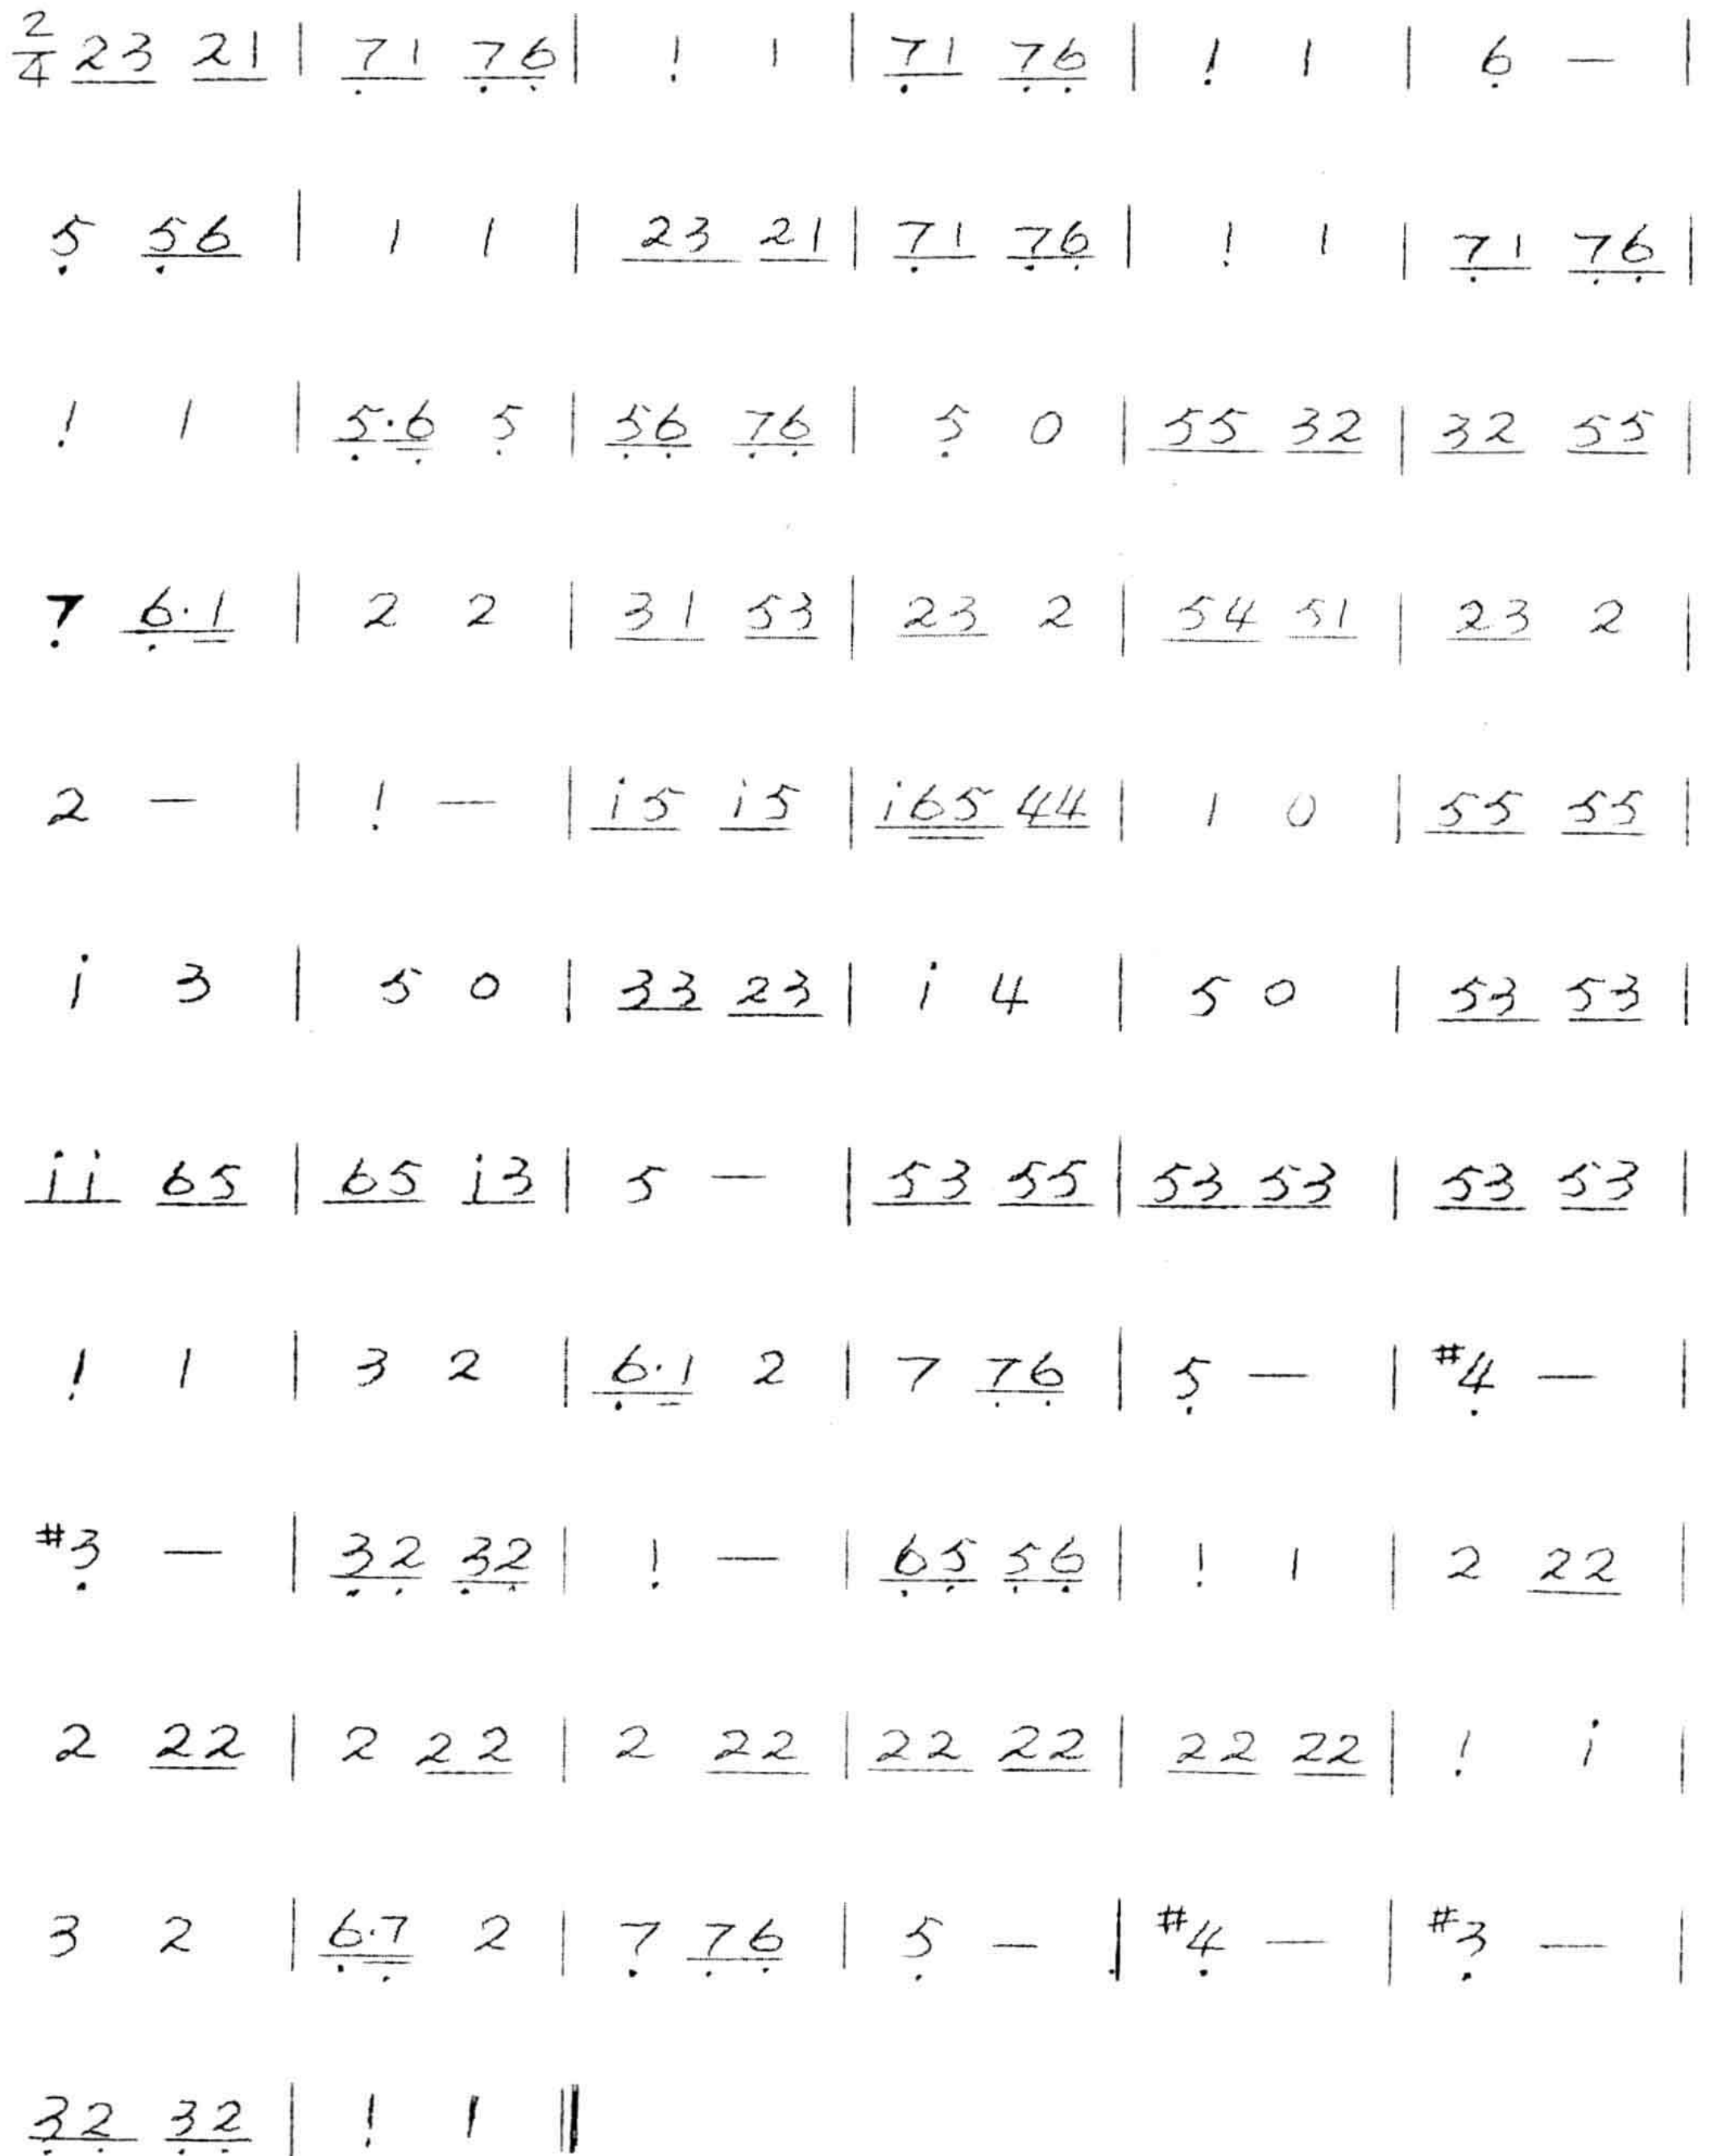 2/4 2̲3̲ 2̲1̲ | 7̣̲1̲ 7̣̲6̣̲ | 1̣ 1 | 7̣̲1̲ 7̣̲6̣̲ | 1̣ 1 | 6̣ — |
5̣ 5̣̲6̲ | 1 1 | 2̲3̲ 2̲1̲ | 7̣̲1̲ 7̣̲6̣̲ | 1̣ 1 | 7̣̲1̲ 7̣̲6̣̲ |
1̣ 1 | 5̣̲·6̣̳ 5̣ | 5̣̲6̣̲ 7̣̲6̣̲ | 5̣ 0 | 5̲5̲ 3̲2̲ | 3̲2̲ 5̲5̲ |
7̣ 6̣̲·1̳ | 2 2 | 3̲1̲ 5̲3̲ | 2̲3̲ 2 | 5̲4̲ 5̲1̲ | 2̲3̲ 2 |
2 — | 1̣ — | 1̲̇5̲ 1̲̇5̲ | 1̲̇6̳5̳ 4̲4̲ | 1 0 | 5̲5̲ 5̲5̲ |
1̇ 3 | 5 0 | 3̲3̲ 2̲3̲ | 1̇ 4 | 5 0 | 5̲3̲ 5̲3̲ |
1̲̇1̲̇ 6̲5̲ | 6̲5̲ 1̲̇3̲ | 5 — | 5̲3̲ 5̲5̲ | 5̲3̲ 5̲3̲ | 5̲3̲ 5̲3̲ |
1̣ 1 | 3 2 | 6̣̲·1̳ 2 | 7 7̣̲6̣̲ | 5̣ — | #4̣ — |
#3̣ — | 3̣̲2̣̲ 3̣̲2̣̲ | 1̣ — | 6̣̲5̣̲ 5̣̲6̣̲ | 1̣ 1 | 2 2̲2̲ |
2 2̲2̲ | 2 2̲2̲ | 2 2̲2̲ | 2̲2̲ 2̲2̲ | 2̲2̲ 2̲2̲ | 1̣ 1̇ |
3 2 | 6̣̲·7̣̳ 2 | 7̣ 7̣̲6̣̲ | 5̣ — | #4̣ — | #3̣ — |
3̣̲2̣̲ 3̣̲2̣̲ | 1̣ 1 ‖